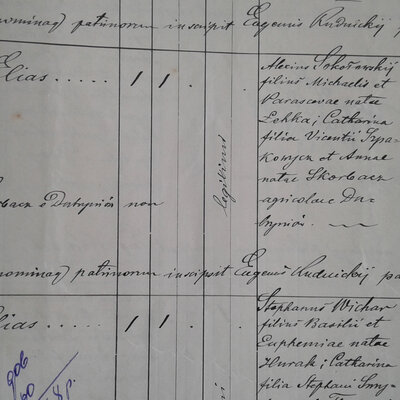 (nominaq) patrinorum inscipsit Eugenius Rudnickij p
Elias ..... 1 1 . .
Alexius Sokołowskij
filius Michaelis et
Parascevae natae
Lohka; Catharina
filia Vicentii Szpa-
kowycz et Annae
natae Skorbacz
agricolae Da-
brynióv.
legitimi
bacz e Dabrynióv non
nominaq) patrinorum inscipsit Eugenius Rudnickij pa
Elias ..... 1 1 . .
Stephanus Wichar
filius Basilii et
Euphemiae natae
Hurak; Catharina
filia Stephani Smy-